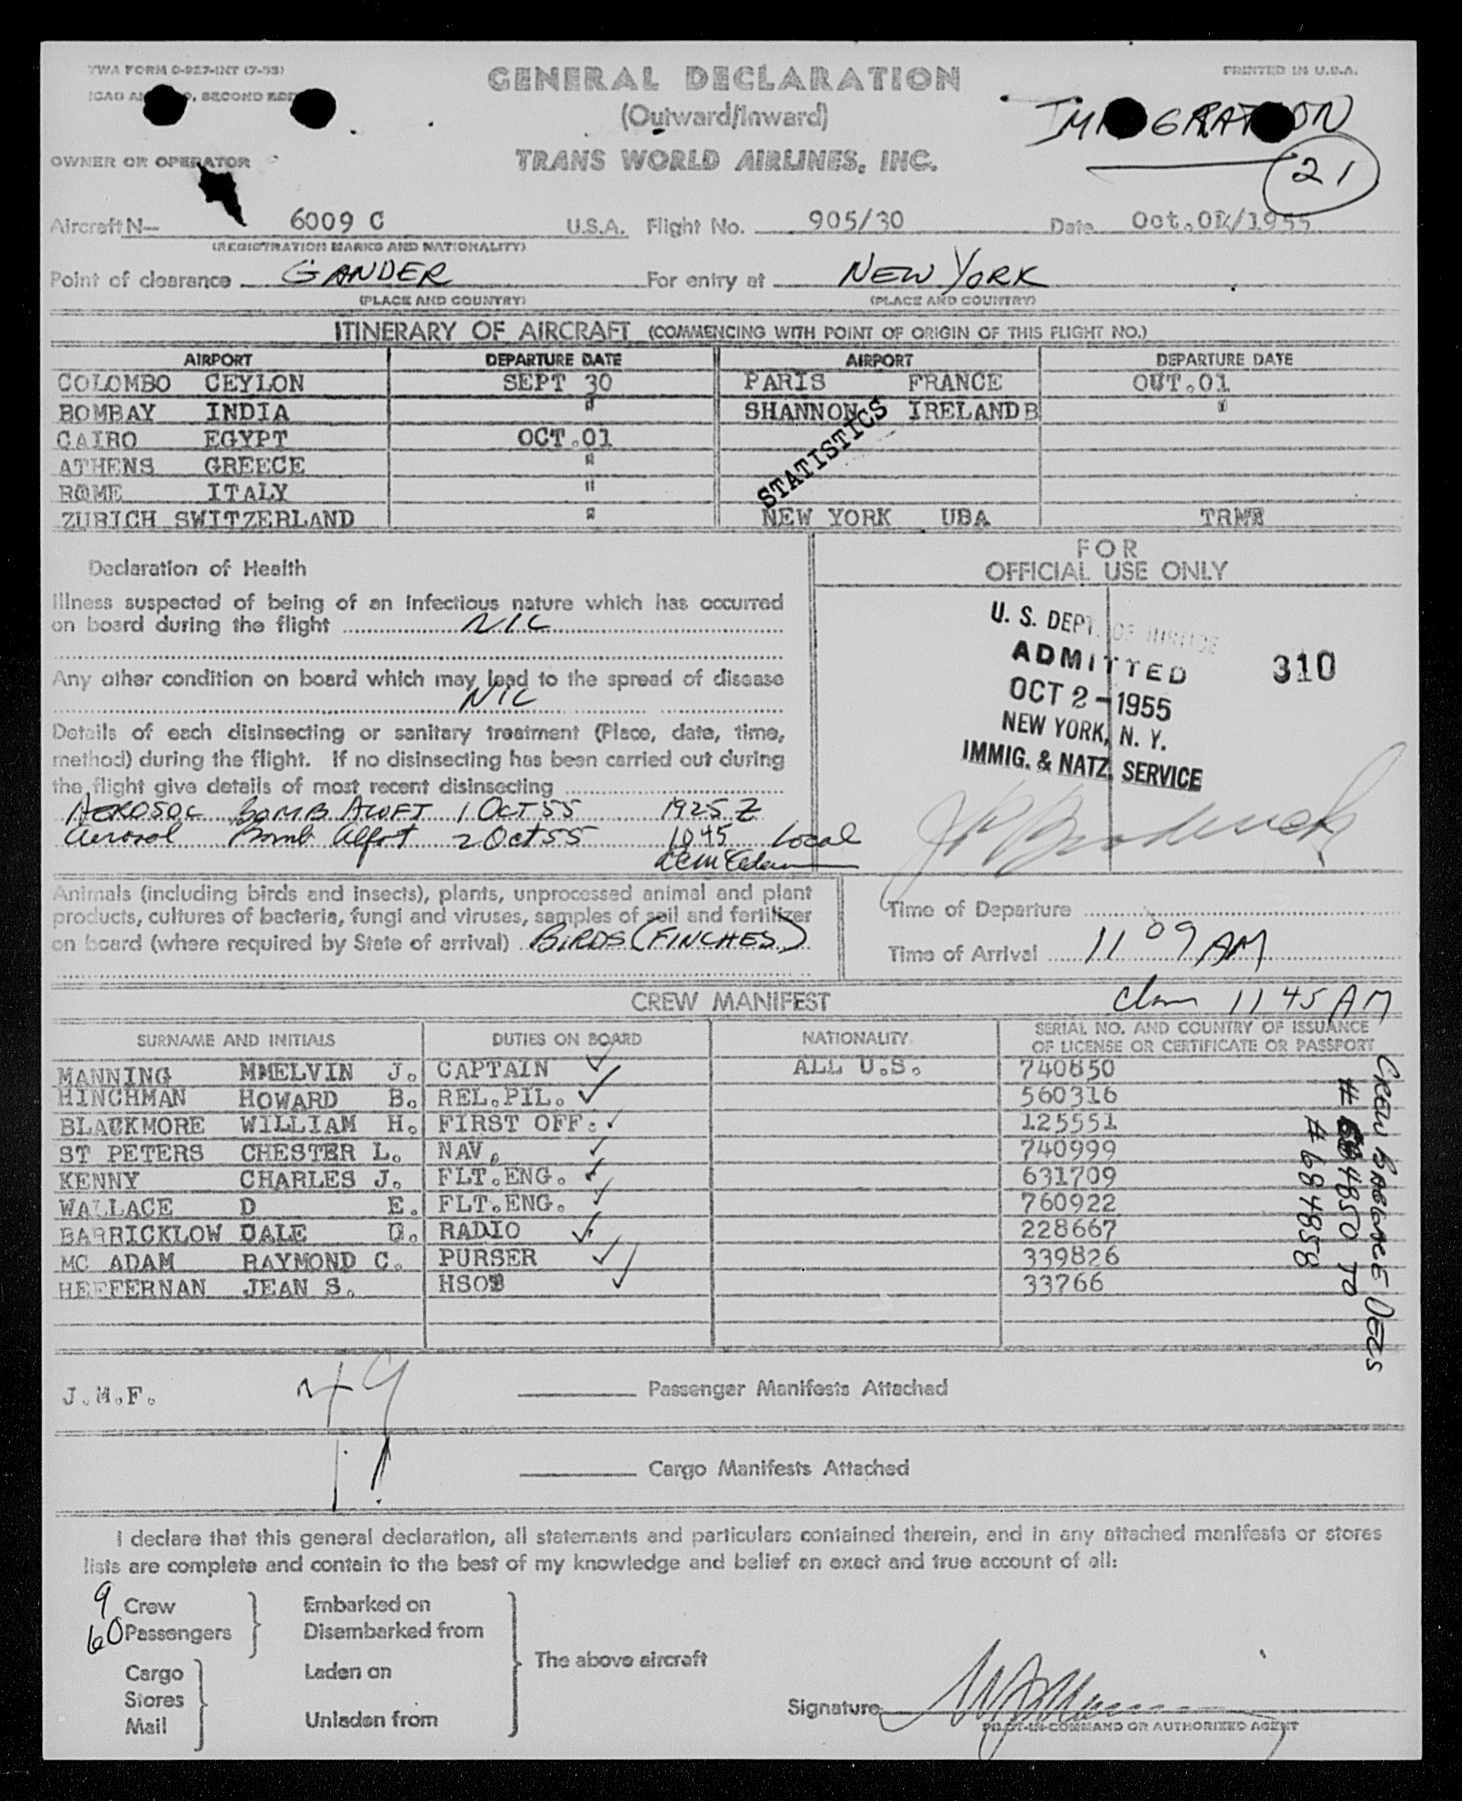 TWA FORM O-927-INT (7-53)
PRINTED IN U.S.A.
GENERAL DECLARATION
ICAO SECOND
(Outward/Inward)
IMMIGRATION
OWNER OR OPERATOR
TRANS WORLD AIRLINES, INC.
21
Aircraft N- 6009 C U.S.A. Flight No. 905/30 Date Oct.02/1955
(REGISTRATION MARKS AND NATIONALITY)
Point of clearance GANDER For entry at NEW YORK
(PLACE AND COUNTRY) (PLACE AND COUNTRY)
ITINERARY OF AIRCRAFT (COMMENCING WITH POINT OF ORIGIN OF THIS FLIGHT NO.)
AIRPORT DEPARTURE DATE AIRPORT DEPARTURE DATE
COLOMBO CEYLON SEPT 30 PARIS FRANCE OUT.01
BOMBAY INDIA " SHANNON IRELANDB "
CAIRO EGYPT OCT.01
ATHENS GREECE "
ROME ITALY "
STATISTICS
ZURICH SWITZERLAND " NEW YORK UBA TRMB
Declaration of Health
FOR
OFFICIAL USE ONLY
Illness suspected of being of an infectious nature which has occurred
on board during the flight NIL
Any other condition on board which may lead to the spread of disease
NIL
U. S. DEPT. OF JUSTICE
ADMITTED
310
OCT 2-1955
NEW YORK, N. Y.
IMMIG. & NATZ. SERVICE
Details of each disinsecting or sanitary treatment (Place, date, time,
method) during the flight. If no disinsecting has been carried out during
the flight give details of most recent disinsecting
AEROSOL BOMB ALOFT 1 OCT 55 1925 Z
Aerosol Bomb Alfot 2 Oct 55 1045 Local
Animals (including birds and insects), plants, unprocessed animal and plant
products, cultures of bacteria, fungi and viruses, samples of soil and fertilizer
on board (where required by State of arrival) BIRDS (FINCHES)
Time of Departure
Time of Arrival 11 09 AM
11 45 AM
CREW MANIFEST
SURNAME AND INITIALS DUTIES ON BOARD NATIONALITY SERIAL NO. AND COUNTRY OF ISSUANCE
OF LICENSE OR CERTIFICATE OR PASSPORT
MANNING MMELVIN J. CAPTAIN ALL U.S. 740850
HINCHMAN HOWARD B. REL.PIL. 560316
BLACKMORE WILLIAM H. FIRST OFF. 125551
ST PETERS CHESTER L. NAV. 740999
KENNY CHARLES J. FLT.ENG. 631709
WALLACE D E. FLT.ENG. 760922
BARRICKLOW DALE G. RADIO 228667
MC ADAM RAYMOND C. PURSER 339826
HEFFERNAN JEAN S. HSOB 33766
CREW BAGGAGE DECS
# 684850 TO
# 684858
J.M.F.
Passenger Manifests Attached
Cargo Manifests Attached
I declare that this general declaration, all statements and particulars contained therein, and in any attached manifests or stores
lists are complete and contain to the best of my knowledge and belief an exact and true account of all:
9 Crew Embarked on
60 Passengers Disembarked from
The above aircraft
Cargo Laden on
Stores
Mail Unladen from
Signature
PILOT-IN-COMMAND OR AUTHORIZED AGENT